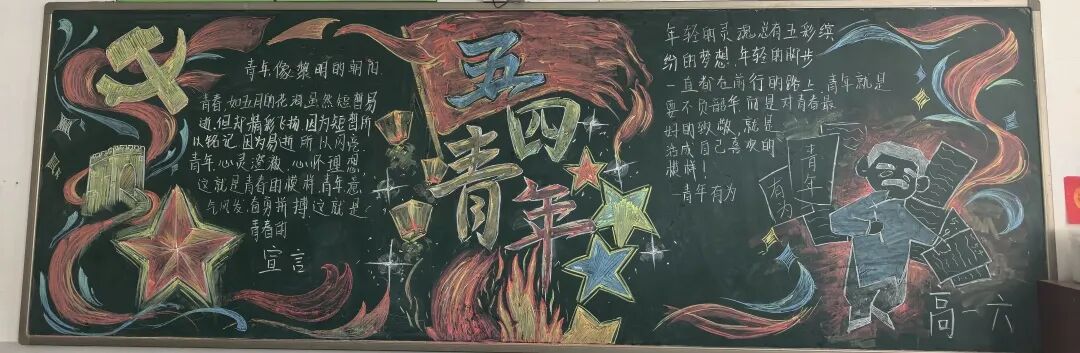 青年像黎明的朝阳
青春,如五月的花海,虽然短暂易
逝,但却精彩飞扬,因为短暂,所
以铭记,因为易逝,所以闪亮.
青年,心灵澄澈,心怀理想,
这就是青春的模样,青年意
气风发,奋勇拼搏,这就是
青春的
宣言
五四青年
年轻的灵魂,总有五彩缤
纷的梦想,年轻的脚步
一直都在前行的路上,青年就是
要不负韶年
对青春最
好的致敬,就是
活成自己喜欢的
模样!
—青年有为
青年
有为
高一六